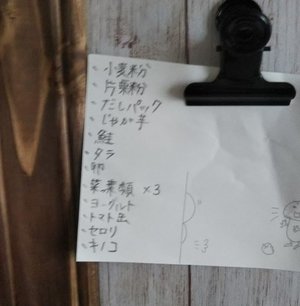 小麦粉
片栗粉
だしパック
じゃが芋
鮭
タラ
卵
葉菜類 ×3
ヨーグルト
トマト缶
セロリ
キノコ